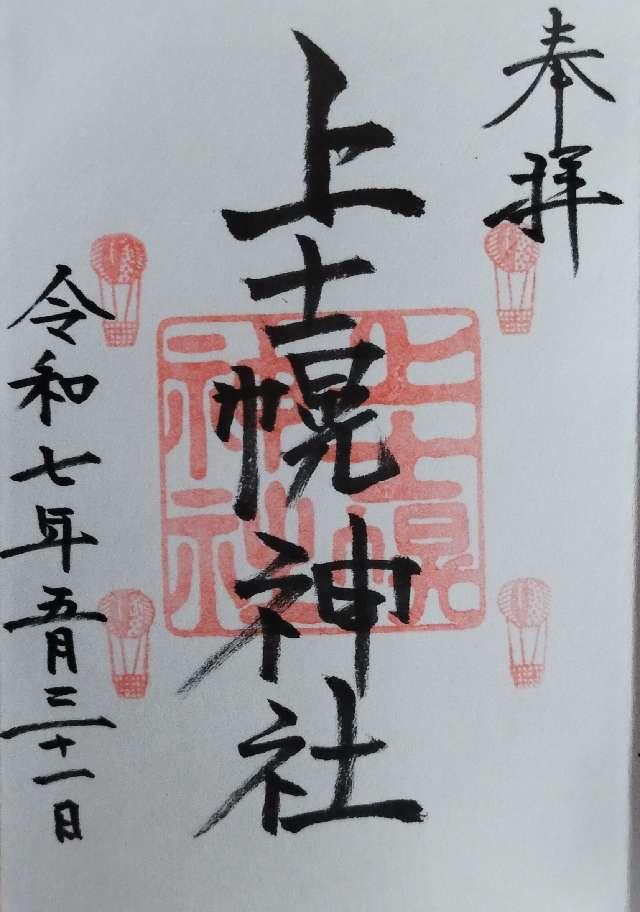 奉拝
上士幌神社
上士幌
神社
令和七年五月三十一日